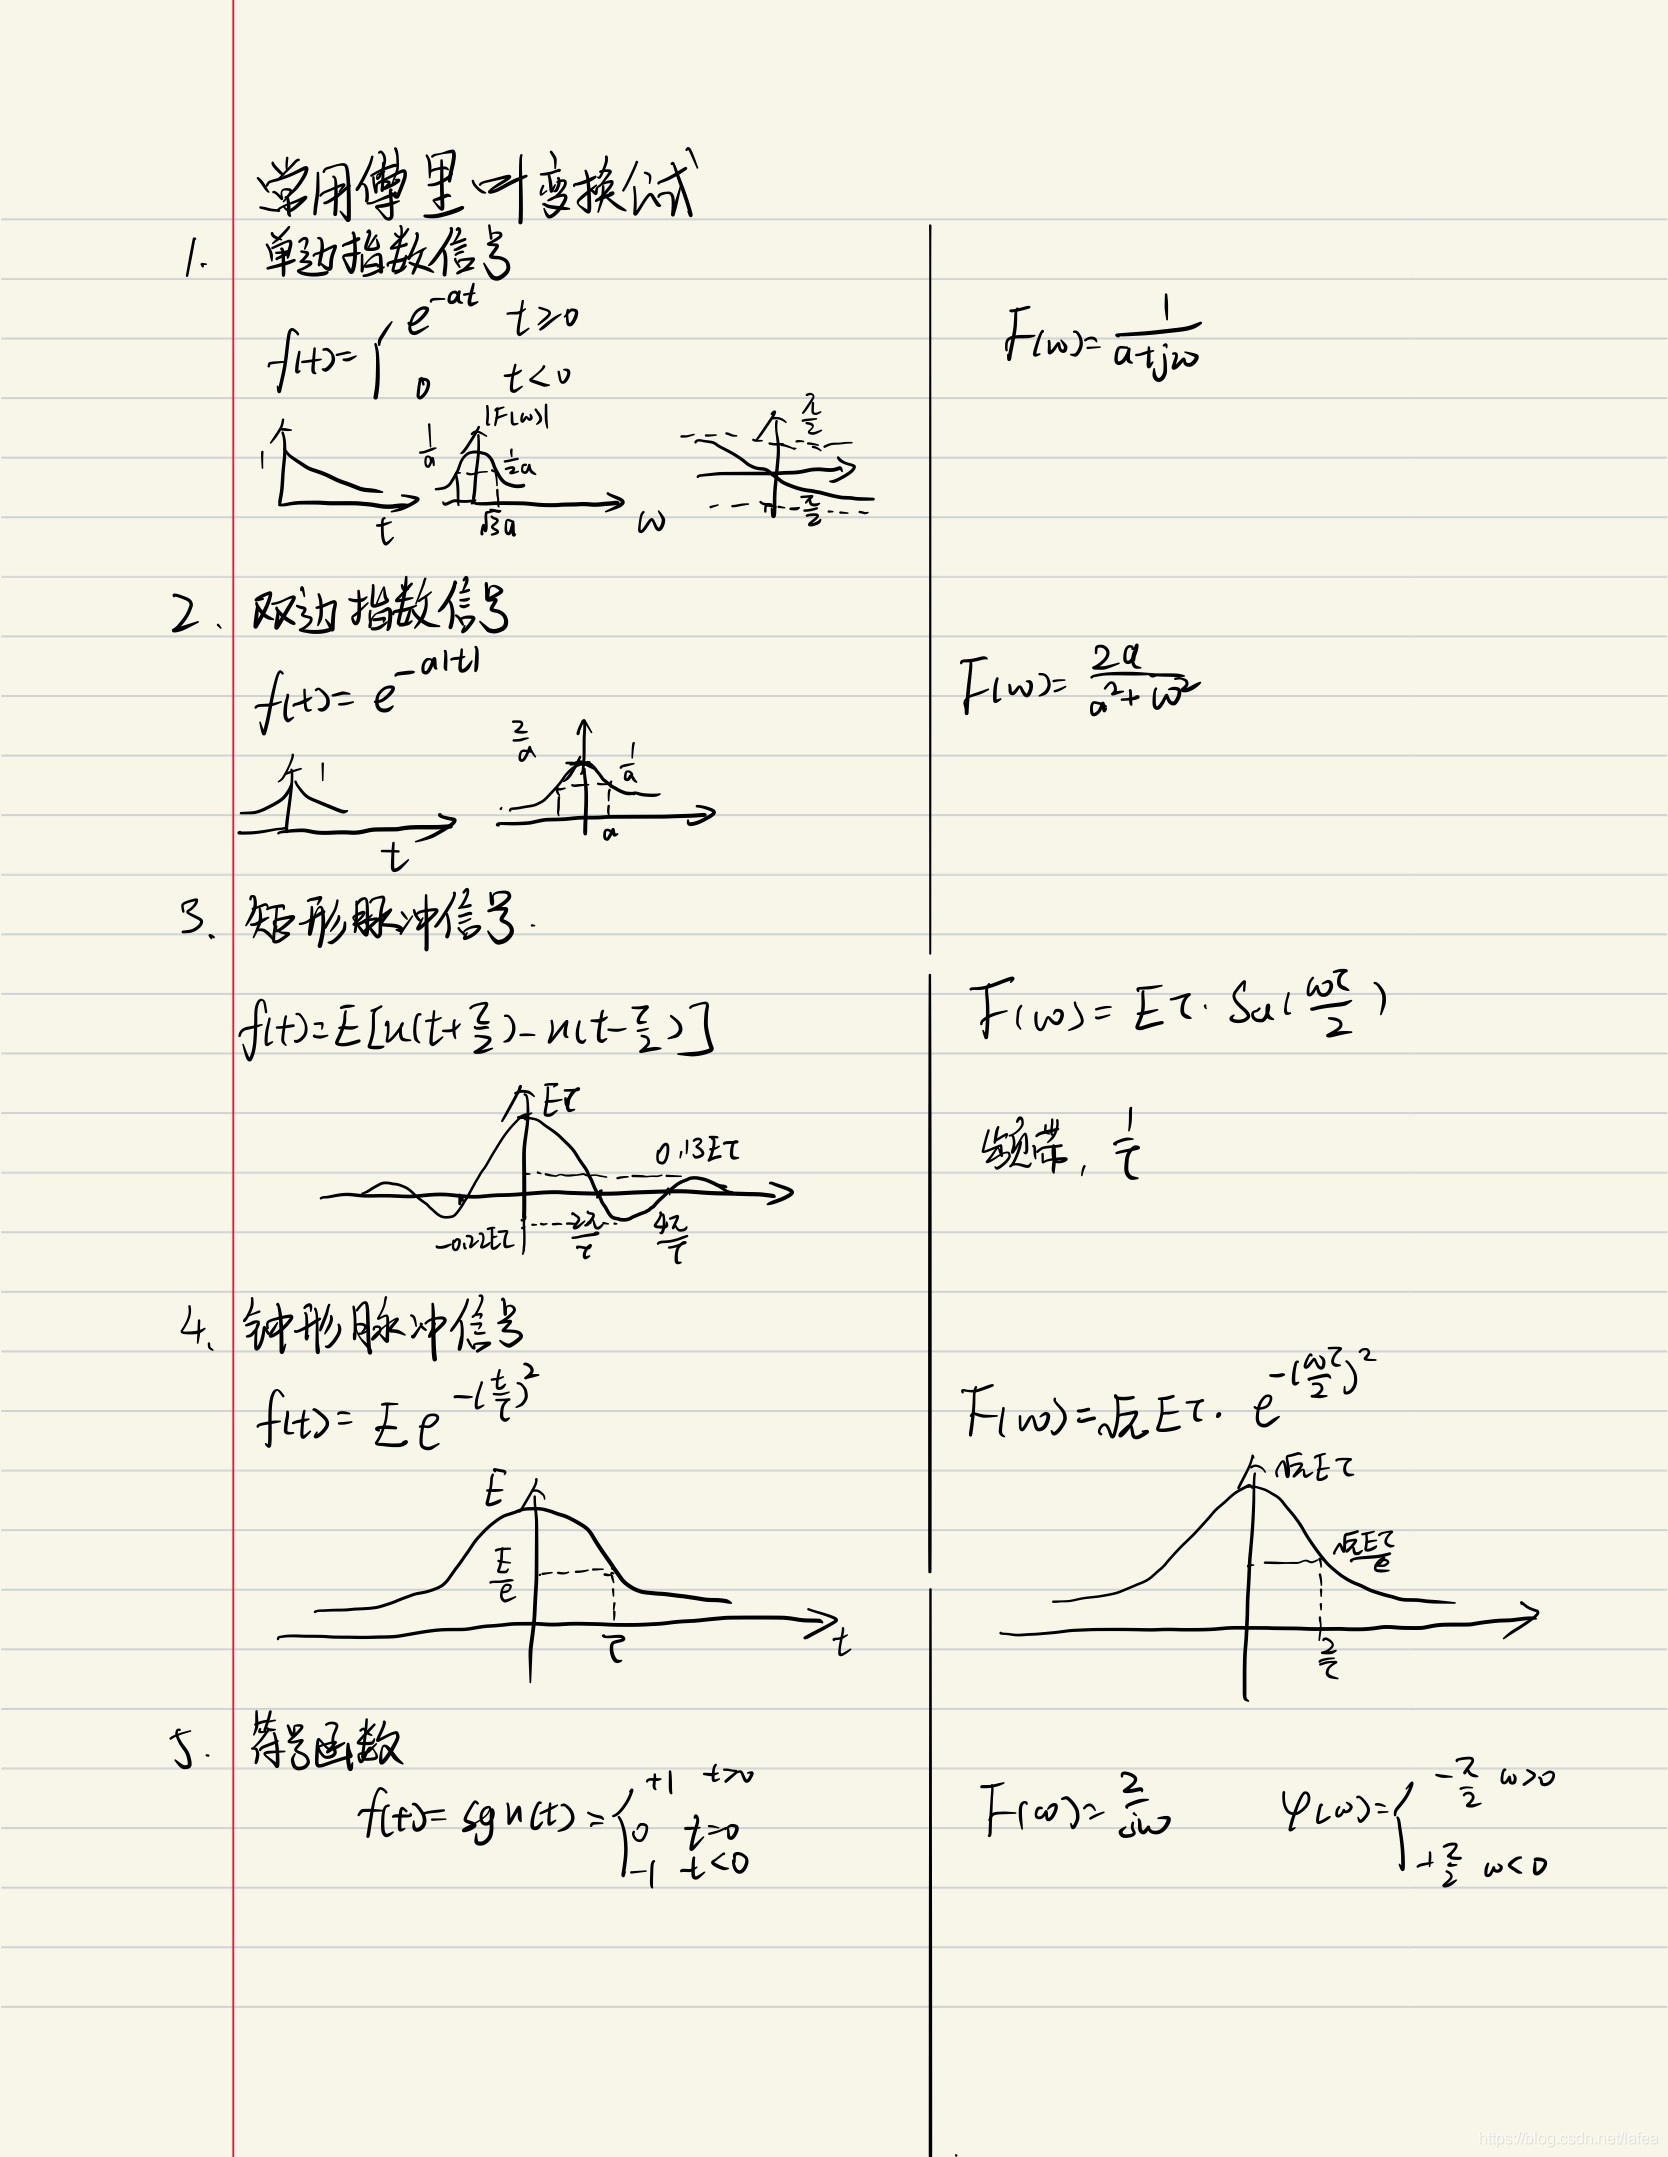 常用傅里叶变换公式
1. 单边指数信号
f(t)= { e^{-at} t≥0
0 t<0
F(ω)= 1/(a+jω)
1 t
1/a |F(ω)| 1/2a √3a ω
π/2 -π/2
2. 双边指数信号
f(t)= e^{-a|t|}
F(ω)= 2a/(a²+ω²)
1 t
2/a 1/a a
3、矩形脉冲信号.
f(t)=E[u(t+τ/2)-u(t-τ/2)]
F(ω)= Eτ·Sa(ωτ/2)
Eτ
0.13Eτ
-0.22Eτ 2π/τ 4π/τ
频带, 1/τ
4、钟形脉冲信号
f(t)= E e^{-(t/τ)²}
F(ω)=√π Eτ· e^{-(ωτ/2)²}
E
E/e
τ t
√π Eτ
√π Eτ/e
2/τ
5. 符号函数
f(t)= sgn(t) = { +1 t>0
0 t=0
-1 t<0
F(ω)= 2/jω
φ(ω)= { -π/2 ω>0
+π/2 ω<0
https://blog.csdn.net/lafea